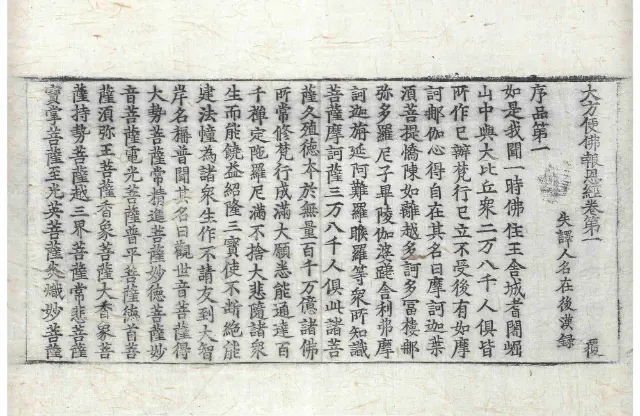 大方便佛報恩經卷第一
失譯人名在後漢録 覆
序品第一
如是我聞一時佛住王舍城耆闍崛
山中與大比丘衆二万八千人俱皆
所作已辦梵行已立不受後有如摩
訶那伽心得自在其名曰摩訶迦葉
須菩提憍陳如離越多訶多富樓那
弥多羅尼子畢陵伽婆蹉舍利弗摩
訶迦旃延阿難羅睺羅等衆所知識
菩薩摩訶薩三万八千人俱此諸菩
薩久殖德本於無量百千万億諸佛
所常修梵行成滿大願悉能通達百
千禪定陁羅尼滿不捨大悲隨諸衆
生而能饒益紹隆三寶使不斷絶能
建法憧為諸衆生作不請友到大智
岸名稱普聞其名曰觀世音菩薩得
大勢菩薩常精進菩薩妙德菩薩妙
音菩薩電光菩薩普平菩薩德首菩
薩須弥王菩薩香象菩薩大香象菩
薩持勢菩薩越三界菩薩常悲菩薩
寶掌菩薩至光英菩薩炎熾妙菩薩